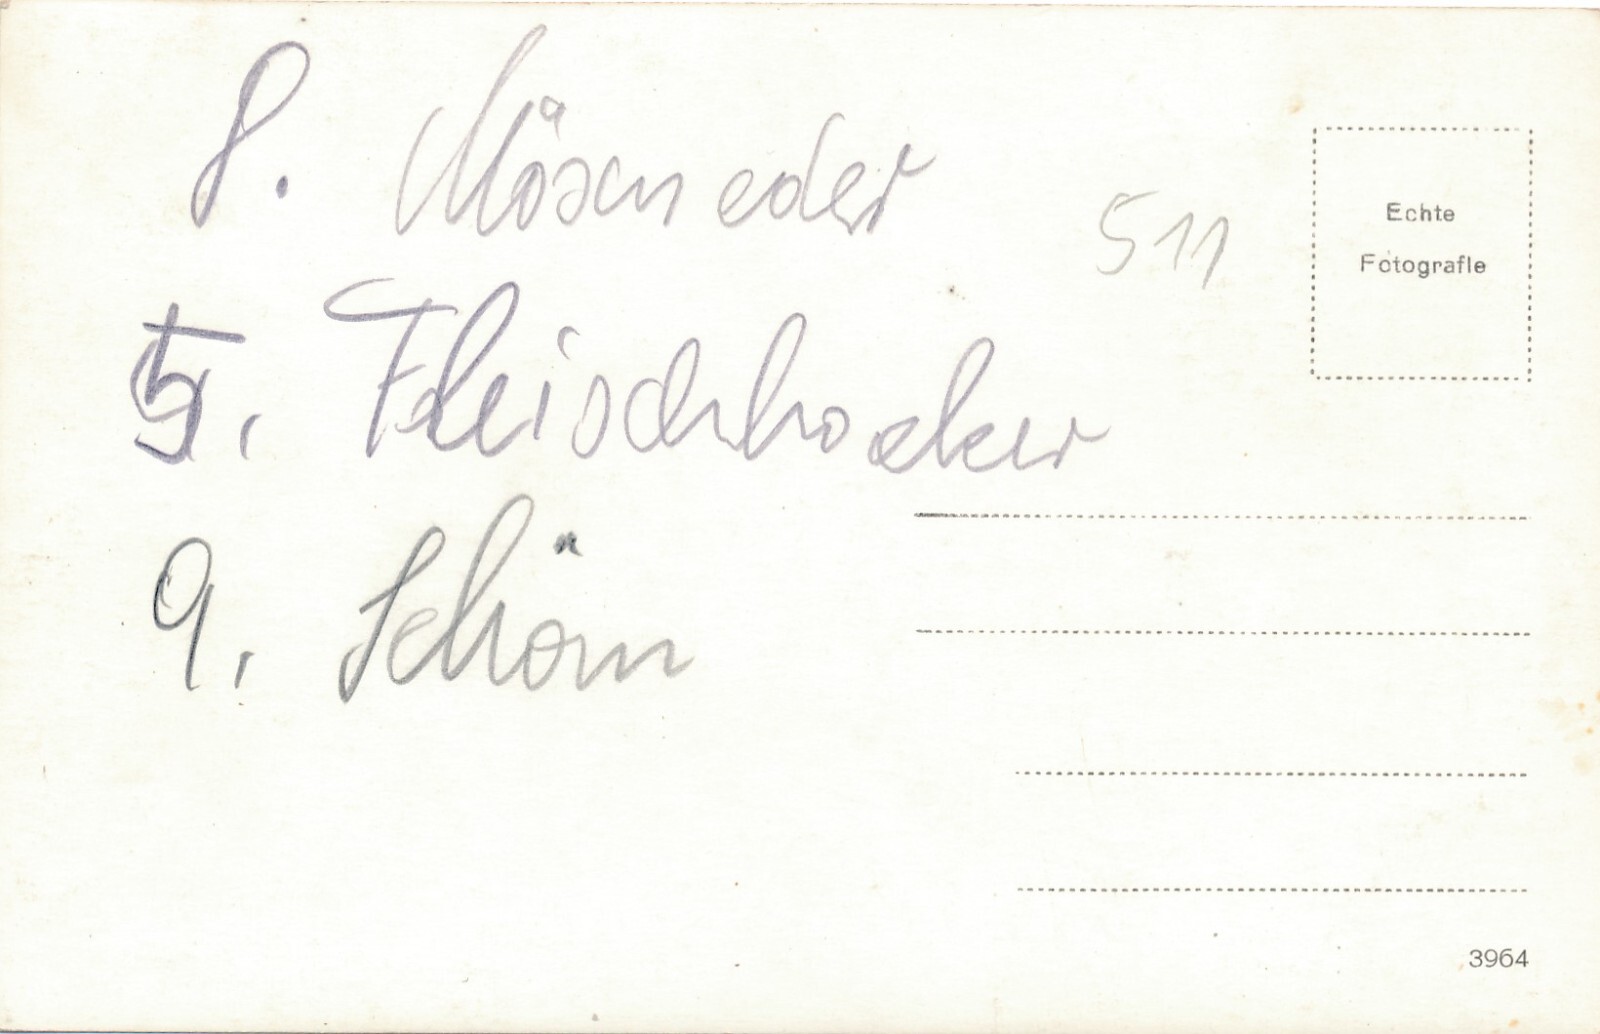 8. Möseneder
511
Echte
Fotografie
5. Fleischhacker
9. Schörn
3964